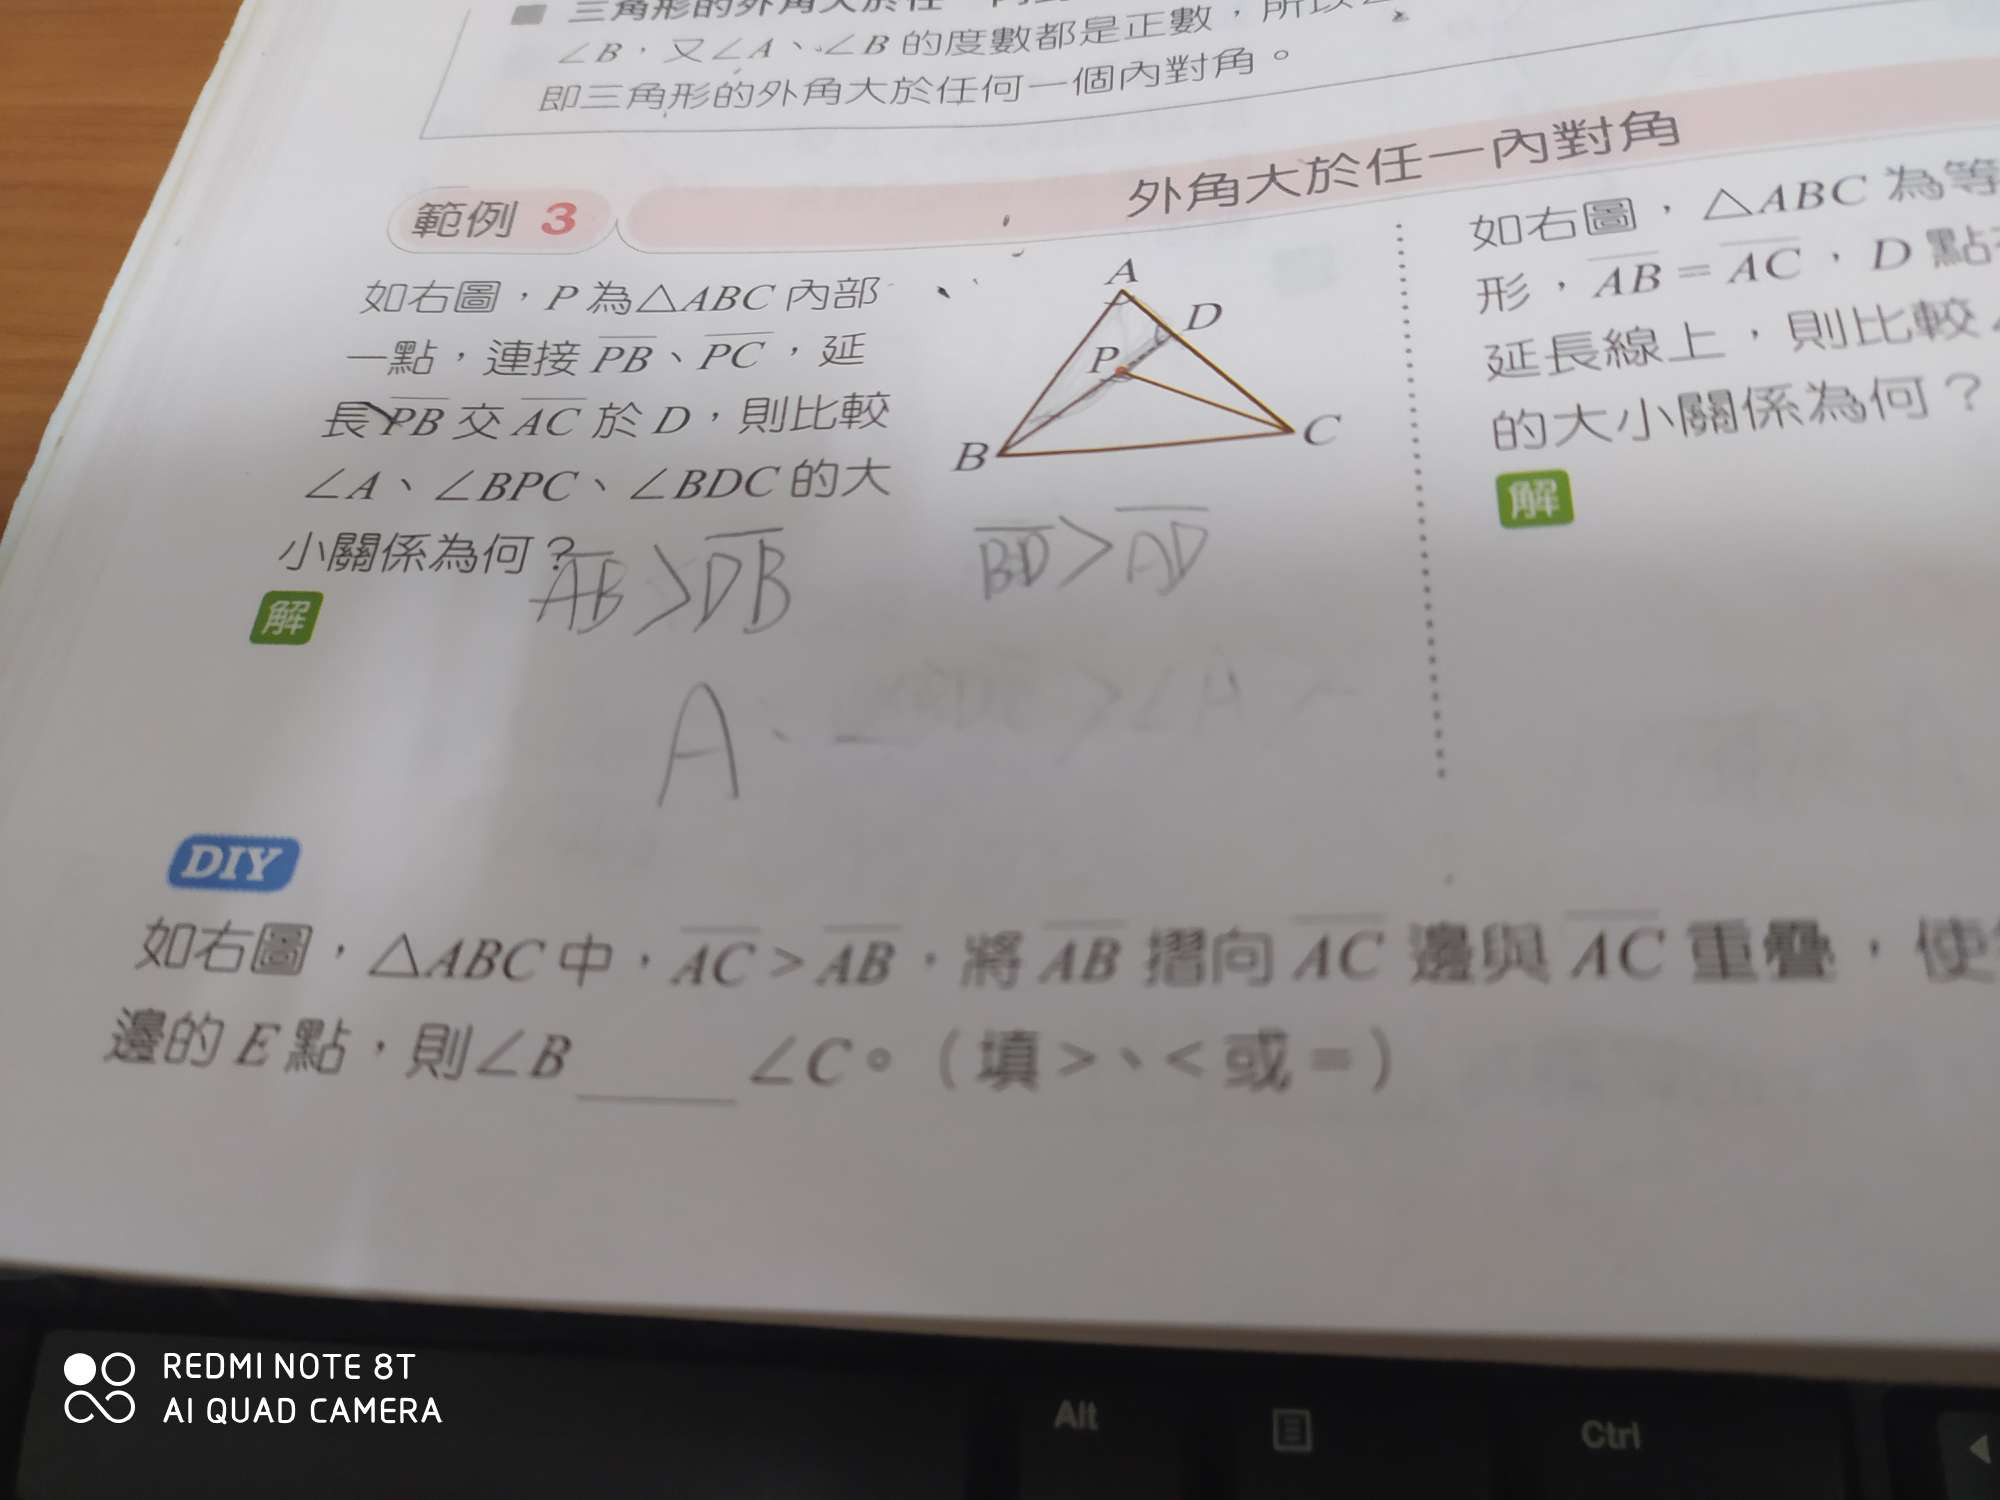 三角形的外角大於任一
∠B，又∠A、∠B 的度數都是正數，所以
即三角形的外角大於任何一個內對角。
外角大於任一內對角
範例 3
如右圖，P 為△ABC 內部
一點，連接 PB、PC，延
長 PB 交 AC 於 D，則比較
∠A、∠BPC、∠BDC 的大
小關係為何？
A
D
P
B
C
AB>DB
BD>AD
解
A、
∠A
如右圖，△ABC 為等
形，AB=AC，D 點
延長線上，則比較
的大小關係為何？
解
DIY
如右圖，△ABC 中，AC>AB，將 AB 摺向 AC 邊與 AC 重疊，使
邊的 E 點，則∠B ____ ∠C。（填>、<或=）
REDMI NOTE 8T
AI QUAD CAMERA
Alt
Ctrl